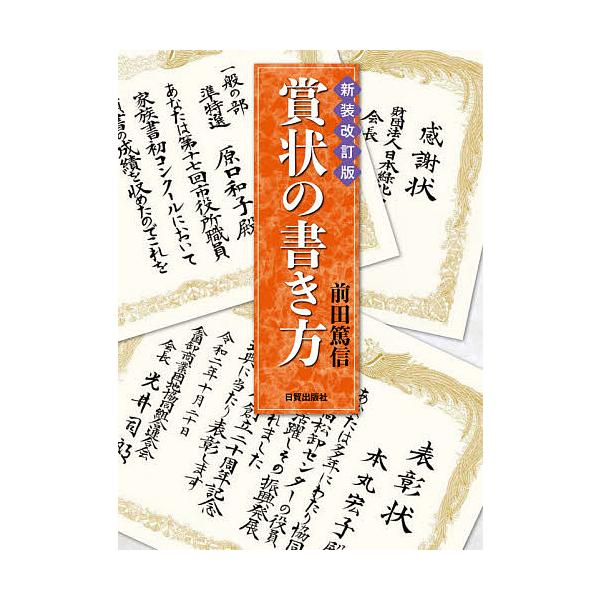 新装改訂版
賞状の書き方
前田篤信
日貿出版社
感謝状
財団法人日本緑化
会長
一般の部
準特選
原口和子殿
あなたは第十七回市役所職員
家族書初コンクールにおいて
の成績を収めたのでこれを
表彰状
本丸宏子殿
あなたは多年にわたり協同
高松卸センターの役員
活躍しその振興発展
されました
創立二十周年記念
典に当たり表彰します
令和二年十月二十日
全国卸商業団地協同組合連合会
会長 光井司郎